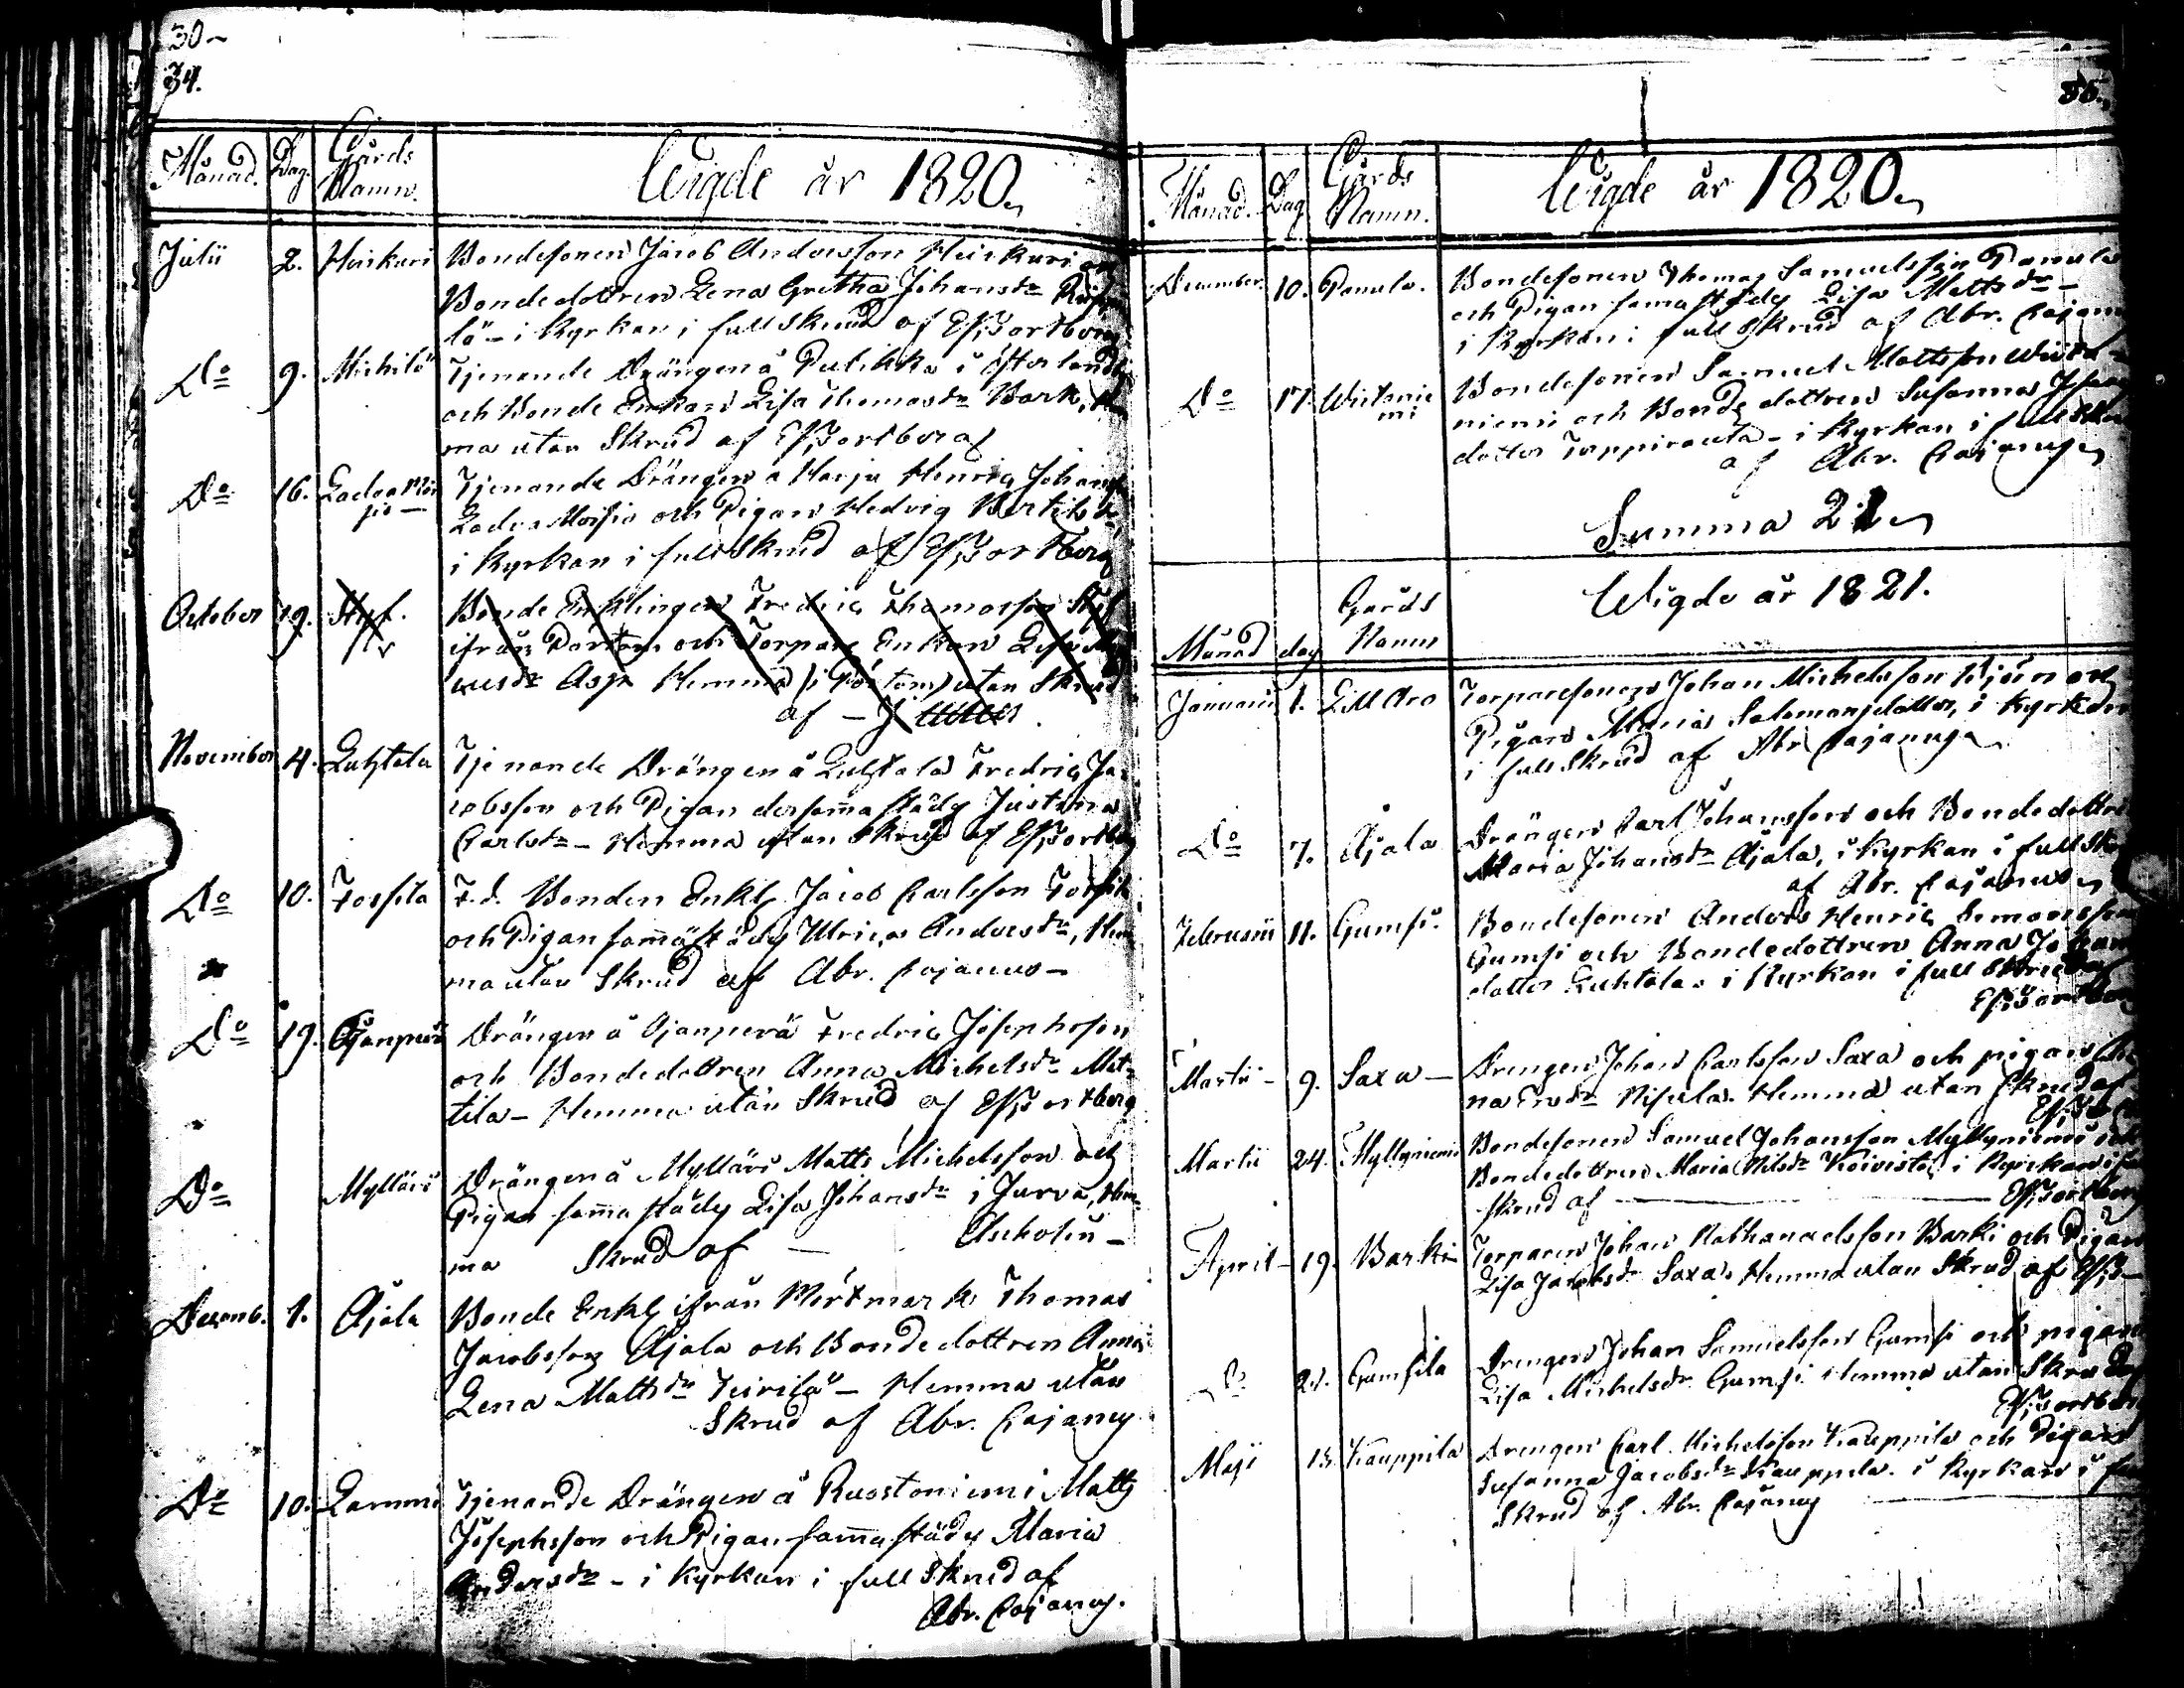 30
34.
Månad. Dag. Gårds Namn. Wigde år 1820
Julii 2. Heikuri Bondesonen Jacob Andersson Heikuri och
Bondedottren Lena Gretha Johansdr
lö - i Kyrkan i full skrud af Efr Bortberg
Do 9. Michilö Tjenande Drängen å Pulikka i Österland
och Bonde Enkan Lisa Thomasdr Bark, Hem
ma utan Skrud af Efr Bortberg
Do 16. Tjenande Drängen å Harju Henric Johansson
och Pigan Hedvig Bertilsdr
i Kyrkan i full skrud af Efr Bortberg
October 19. Bonde Enklingen Fredric Thomasson
ifrån Pörtom och Torpare Enkan Lisa
Asp Hemma i Pörtom utan Skrud
af - J
November 4. Luhtala Tjenande Drängen å Luhtala Fredric Ja-
cobsson och Pigan dersammastädes Justina
Carlsdr - Hemma utan Skrud af Efr Bortberg
Do 10. Torsila F.d. Bonden Enkl. Jacob Carlsson Torsila
och Pigan sammastädes Ulrica Andersdr, Hem
ma utan Skrud af Abr. Cajanus -
Do 19. Ojanperä Drängen å Ojanperä Fredric Josephsson
och Bondedottren Anna Michelsdr Mat-
tila - Hemma utan Skrud af Efr Bortberg
Do Mylläri Drängen å Mylläri Matts Michelsson och
Pigan sammastädes Lisa Johansdr i Jurva, Hem-
ma Skrud af - Ascholin -
Decemb. 1. Äjälä Bonde Enkl. ifrån Mörtmark Thomas
Jacobsson Äjälä och Bondedottren Anna
Lena Mattsdr - Hemma utan
Skrud af Abr. Cajanus
Do 10. Lammi Tjenande Drängen å Ruostoniemi Matts
Josephsson och Pigan sammastädes Maria
Andersdr - i Kyrkan i full Skrud af
Abr. Cajanus.
35.
Månad. Dag Gårds Namn. Wigde år 1820
December. 10. Panula. Bondesonen Thomas Samuelsson Panula
och Pigan sammastädes Lisa Mattsdr -
i Kyrkan i full Skrud af Abr. Cajanus
Do 17. Wirtanie mi Bondesonen Samuel Mattsson Wirta-
niemi och Bondedottren Susanna
dotter Torppirauta - i Kyrkan i full Skrud
af Abr. Cajanus
Summa 21
Månad dag Gårds Namn Wigde år 1821.
Januarii 1. Lill Aro Torparesonen Johan Michelsson Björn och
Pigan Maria Salomonsdotter, i Kyrkan
i full Skrud af Abr Cajanus
Do 7. Äjälä Drängen Carl Johansson och Bondedottren
Maria Johansdr Äjälä, i Kyrkan i full Skrud
af Abr. Cajanus
Februarii 11. Gumsi. Bondesonen Anders Henric Simonsson
Gumsi och Bondedottren Anna Johans
dotter Luhtala. i Kyrkan i full Skrud af
Efr Bortberg
Martii - 9. Saxa - Drengen Johan Carlsson Saxa och pigan An
na Ersdr Nisula. Hemma utan skrud af
Efr Bort
Martii 24. Myllyniemi Bondesonen Samuel Johansson Myllyniemi och
Bondedottren Maria Nilsdr Koivisto i Kyrkan i full
skrud af - Efr Bortberg
April - 19. Barki Torparen Johan Nathanaelsson Barki och Pigan
Lisa Jacobsdr Saxa, Hemma utan Skrud af Efr B -
Do Gumsila Drengen Johan Samuelsson Gumsi och pigan
Lisa Michelsdr Gumsi Hemma utan Skrud af
Efr Bortberg
Maji 13. Kauppila Drengen Carl Michelsson Kauppila och Pigan
Susanna Jacobsdr Kauppila. i Kyrkan i full
Skrud af Abr. Cajanus